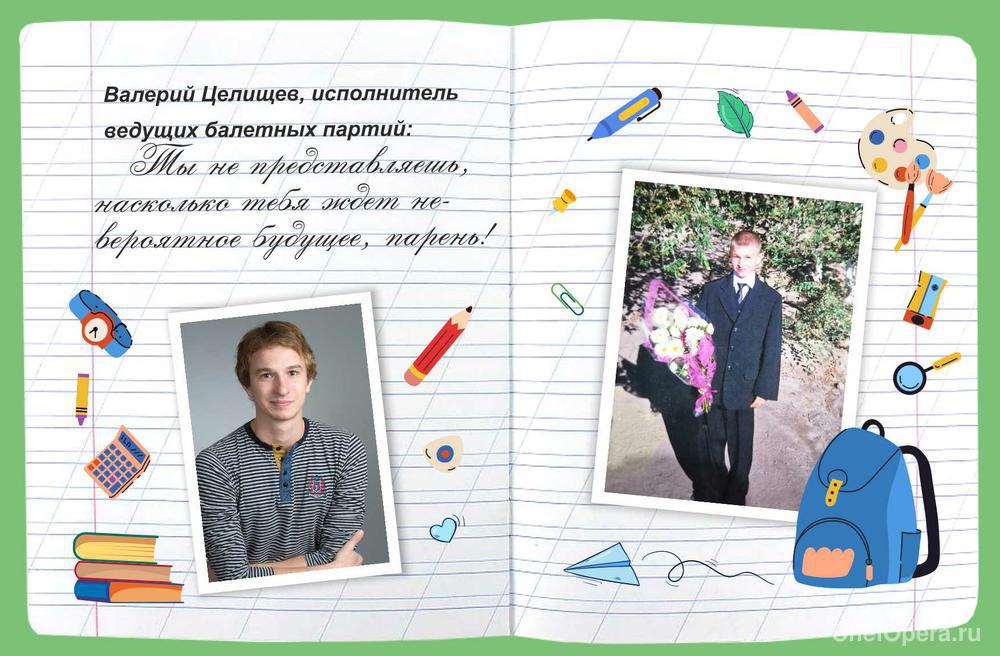 Валерий Целищев, исполнитель
ведущих балетных партий:
Ты не представляешь,
насколько тебя ждет не-
вероятное будущее, парень!
ChelOpera.ru